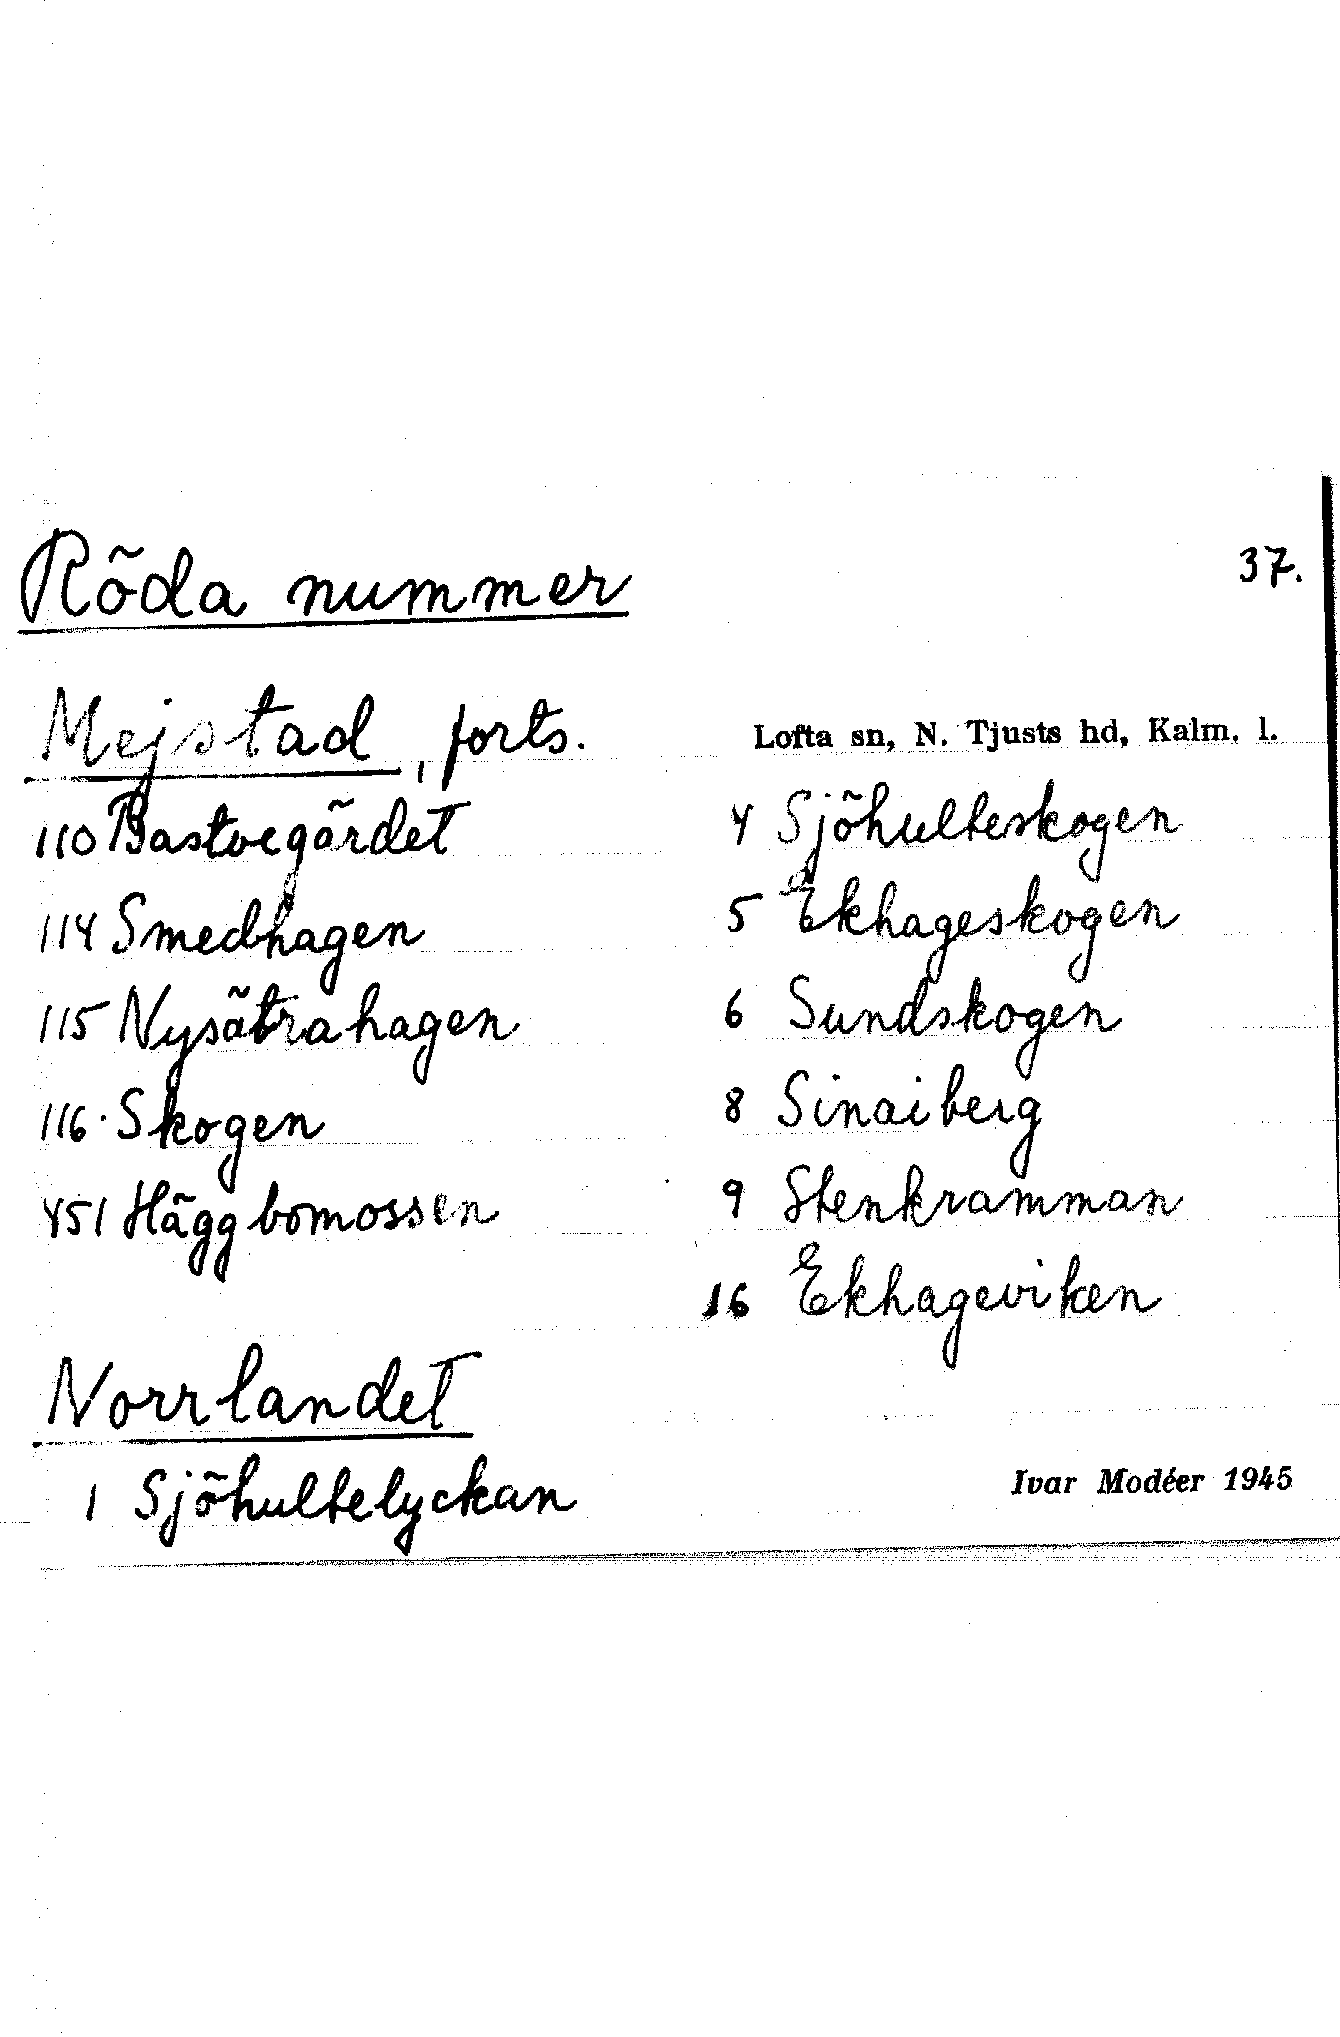 Röda nummer
37.
Mejstad, forts.
110 Bastvegärdet
114 Smedhagen
115 Nysätrahagen
116. Skogen
451 Häggbomossen
Norrlandet
1 Sjöhultelyckan
Lofta sn, N. Tjusts hd, Kalm. l.
4 Sjöhulteskogen
5 Ekhageskogen
6 Sundskogen
8 Sinaiberg
9 Stenkramman
16 Ekhageviken
Ivar Modéer 1945